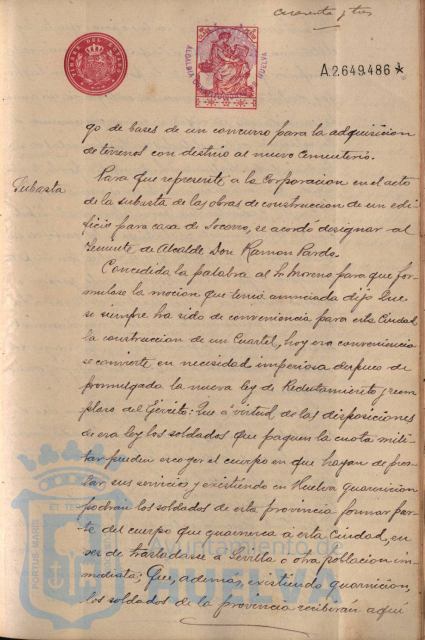 cuarenta y tres
TIMBRE DEL ESTADO
ALCALDIA HUELVA
A.2.649.486 *
go de bases de un concurso para la adquisicion
de terrenos con destino al nuevo Cementerio.
Subasta
Para que represente á la Corporacion en el acto
de la subasta de las obras de construccion de un edi-
ficio para casa de Socorro, se acordó designar al
Teniente de Alcalde Don Ramon Pardo.
Concedida la palabra al Sr. Moreno para que for-
mulase la mocion que tenia anunciada dijo: Que
si siempre ha sido de conveniencia para esta Ciudad
la construccion de un Cuartel, hoy esa conveniencia
se convierte en necesidad imperiosa despues de
promulgada la nueva ley de Reclutamiento y reem-
plazo del Ejército: Que á virtud de las disposiciones
de esa ley los soldados que paguen la cuota mili-
tar pueden escoger el cuerpo en que hayan de pres-
tar sus servicios y existiendo en Huelva guarnicion
podran los soldados de esta provincia formar par-
te del cuerpo que guarnezca a esta Ciudad, en
vez de trasladarse a Sevilla ú otra poblacion in-
mediata; Que, ademas, existiendo guarnicion,
los soldados de la provincia recibirán aquí
PORTUS MARIS ET TERRAE
Ayuntamiento de
HUELVA